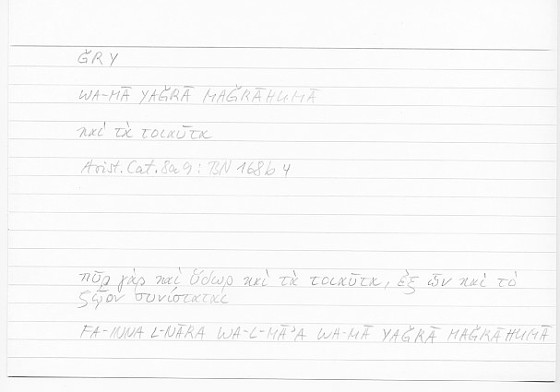 ǦRY
WA-MĀ YAǦRĀ MAǦRĀHUMĀ
καὶ τὰ τοιαῦτα
Arist. Cat. 8a9 : BN 168b4
πῦρ γὰρ καὶ ὕδωρ καὶ τὰ τοιαῦτα, ἐξ ὧν καὶ τὸ
ζῷον συνίσταται
FA-INNA L-NĀRA WA-L-MĀʾA WA-MĀ YAǦRĀ MAǦRĀHUMĀ